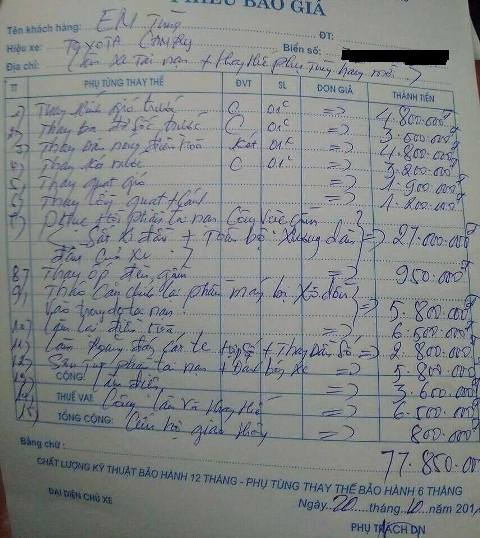 PHIẾU BÁO GIÁ
Tên khách hàng: EM Tùng ĐT:
Hiệu xe: TOYOTA CAMRY Biển số:
Địa chỉ: xe Tai nạn + thay thế phụ tùng
TT PHỤ TÙNG THAY THẾ ĐVT SL ĐƠN GIÁ THÀNH TIỀN
1) Thay kính gió trước C 01c => 4.800.000đ
2) Thay ba đờ sốc trước C 01c => 3.600.000đ
3) Thay dàn nóng điều hòa két 01c => 4.800.000đ
4) Thay két nước C 01c => 3.200.000đ
5) Thay quạt gió => 1.900.000đ
6) Thay lồng quạt => 1.200.000đ
7) Phục hồi phần tai nạn
+ toàn bộ xương đầu => 27.000.000đ
đầu của xe
8) Thay ốp đèn gầm => 950.000đ
9) Tháo căn chỉnh lại phần máy bị xô dồn
vào trong do tai nạn => 5.800.000đ
10) Làm lại điều hòa => 6.500.000đ
11) => 2.800.000đ
12) Sơn phần tai nạn + xe => 5.800.000đ
CỘNG:
13) Làm điện => 3.600.000
THUẾ VAT
14) Công làm và thay thế => 6.500.000
TỔNG CỘNG:
15) Cẩu giao thông => 800.000đ
Bằng chữ: 77.850.000
CHẤT LƯỢNG KỸ THUẬT BẢO HÀNH 12 THÁNG - PHỤ TÙNG THAY THẾ BẢO HÀNH 6 THÁNG
Ngày 20 tháng 10 năm 201
ĐẠI DIỆN CHỦ XE PHỤ TRÁCH DN